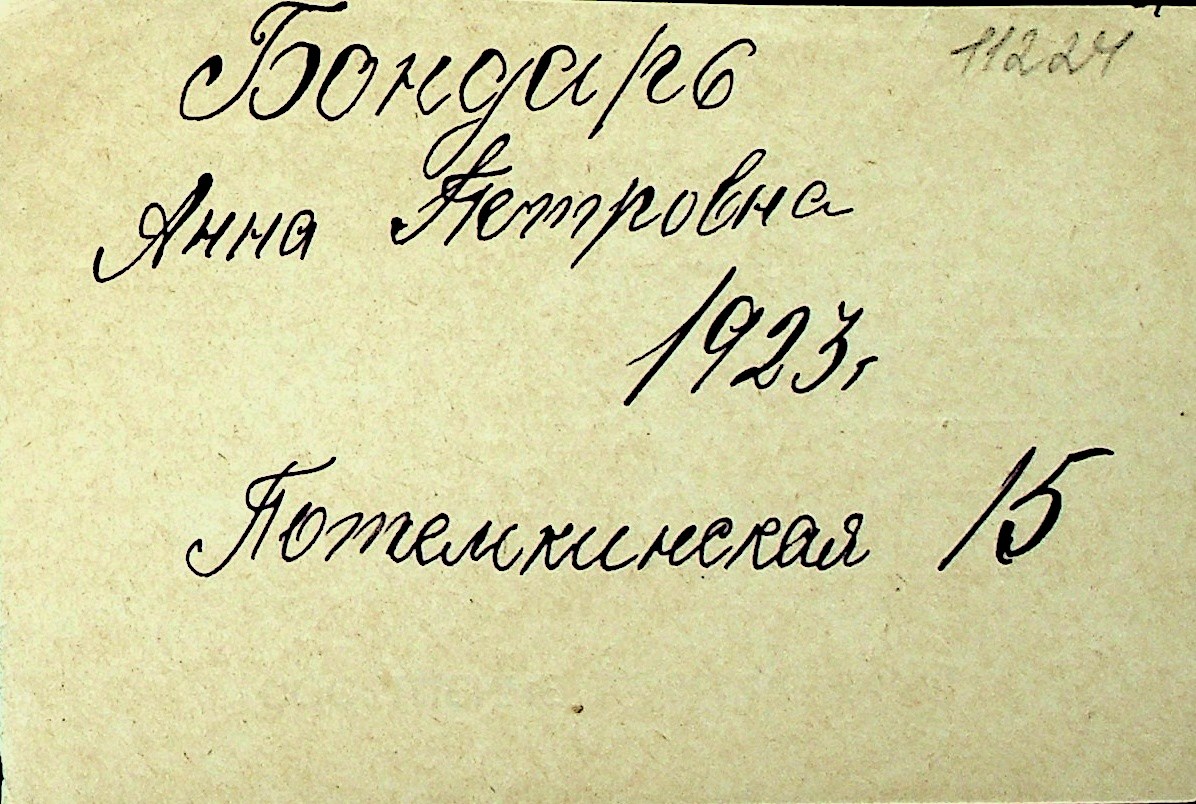 Бондарь 11224
Анна Петровна
1923г
Потемкинская 15